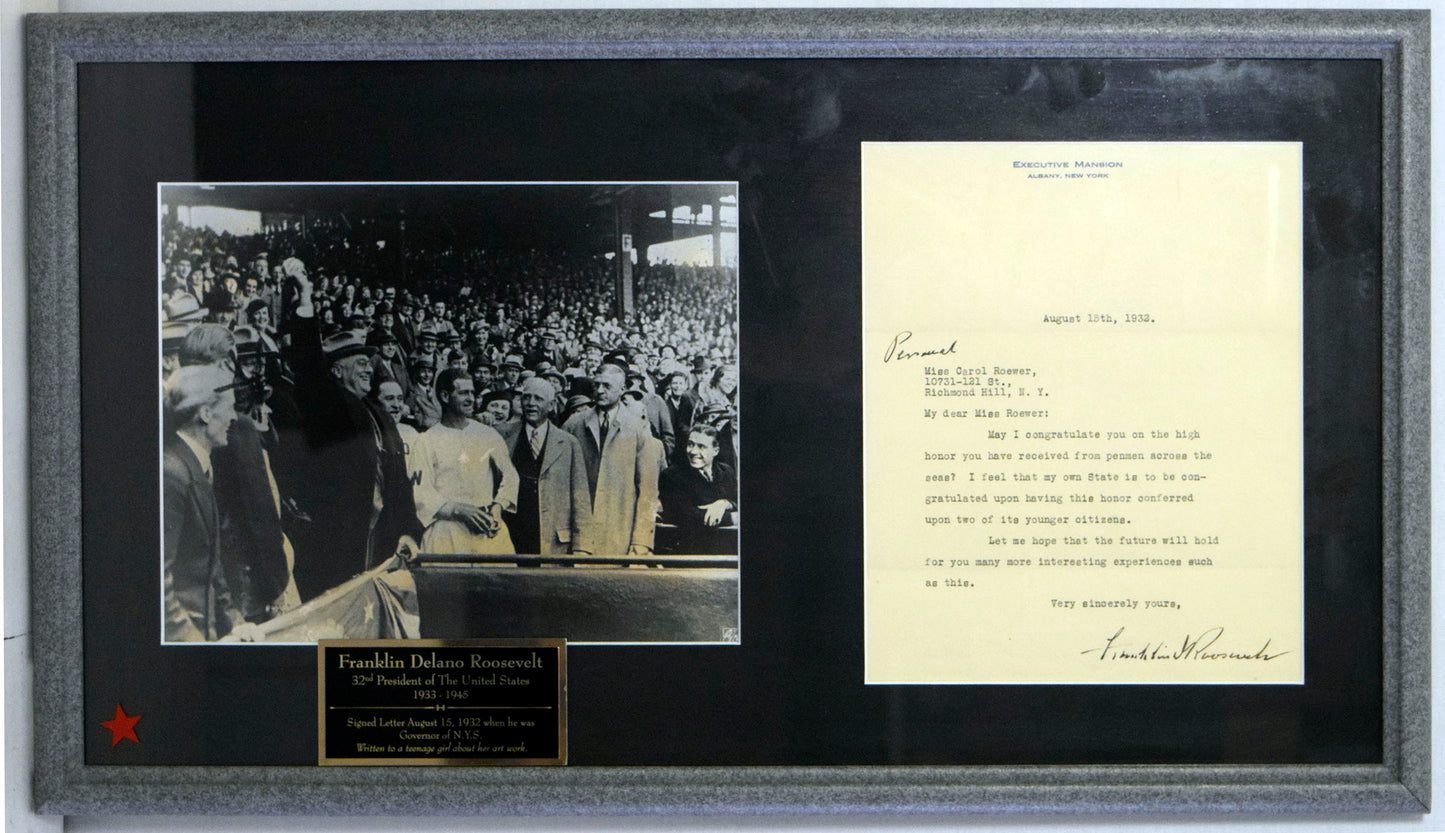 F
D
W
Franklin Delano Roosevelt
32nd President of The United States
1933 - 1945
Signed Letter August 15, 1932 when he was
Governor of N.Y.S.
Written to a teenage girl about her art work.
EXECUTIVE MANSION
ALBANY, NEW YORK
August 15th, 1932.
Personal
Miss Carol Roewer,
10731-121 St.,
Richmond Hill, N. Y.
My dear Miss Roewer:
May I congratulate you on the high
honor you have received from penmen across the
seas? I feel that my own State is to be con-
gratulated upon having this honor conferred
upon two of its younger citizens.
Let me hope that the future will hold
for you many more interesting experiences such
as this.
Very sincerely yours,
Franklin D Roosevelt